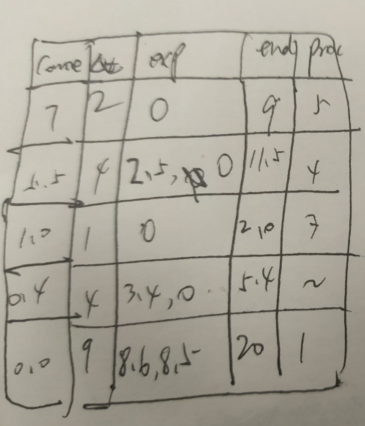 Come Δt exp end proc
7 2 0 9 5
5.5 4 2.5, 0 11.5 4
1.0 1 0 2.0 3
0.4 4 3.4, 0 5.4 2
0.0 9 8.6, 8.5 20 1